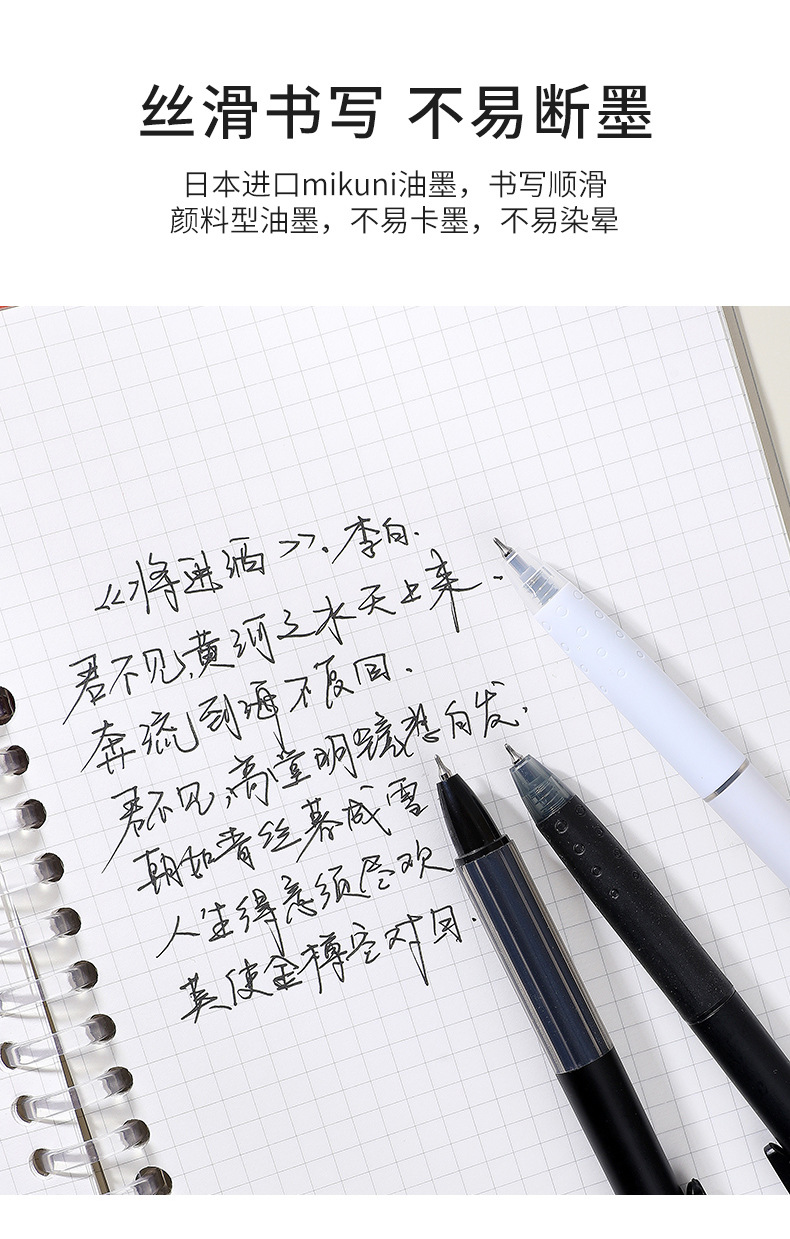 丝滑书写 不易断墨
日本进口mikuni油墨，书写顺滑
颜料型油墨，不易卡墨，不易染晕
《将进酒》.李白.
君不见,黄河之水天上来.
奔流到海不复回.
君不见,高堂明镜悲白发.
朝如青丝暮成雪
人生得意须尽欢
莫使金樽空对月.